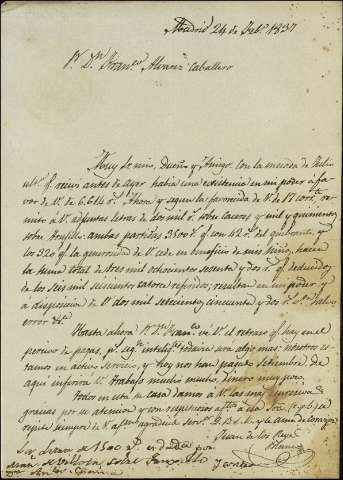 Madrid 24 de Feb.º 1837
S.r D.n Fran.co Alvarez Caballero
Muy S.r mio, Dueño y Amigo: con la mesada de Julio
ult.º q.e recivi antes de ayer habia una existencia en mi poder á fa-
vor de V. de 6.614 r.s Ahora y segun la favorecida de V. de 17 corr.te re-
mito á V. adjuntas letras de dos mil r.s sobre Caceres y mil y quinientos
sobre Trujillo: ambas partidas 3500 r.s con 42 r.s del quebranto, y
los 320 q.e la generosidad de V. cede en beneficio de mis Niños, hacen
la suma total de tres mil ochocientos sesenta y dos r.s q.e deducidos
de los seis mil seiscientos catorce referidos, resultan en mi poder y
á disposicion de V. dos mil setecientos cincuenta y dos r.s v.n salvo
error &.a
Hasta ahora S.r D.n Fran.co vé V. el retraso q.e hay en el
percivo de pagas, p.r seg.n intelig.s todavia será algo mas: nosotros es-
tamos en activo servicio, y hoy nos han pagado Setiembre; de
aqui inferirá V.: trabajo mucho mucho, dinero muy poco.
Todos en esta su casa damos á V. las mas espresivas
gracias por su atencion y con respetuosos af.tos á esa Sra.
siempre de V. af.mo agradecido serv.r Q.B.S.M. y ama de corazon
Juan de los Reyes
Blanco
Las letras de 1500 r.s
sobre Trujillo